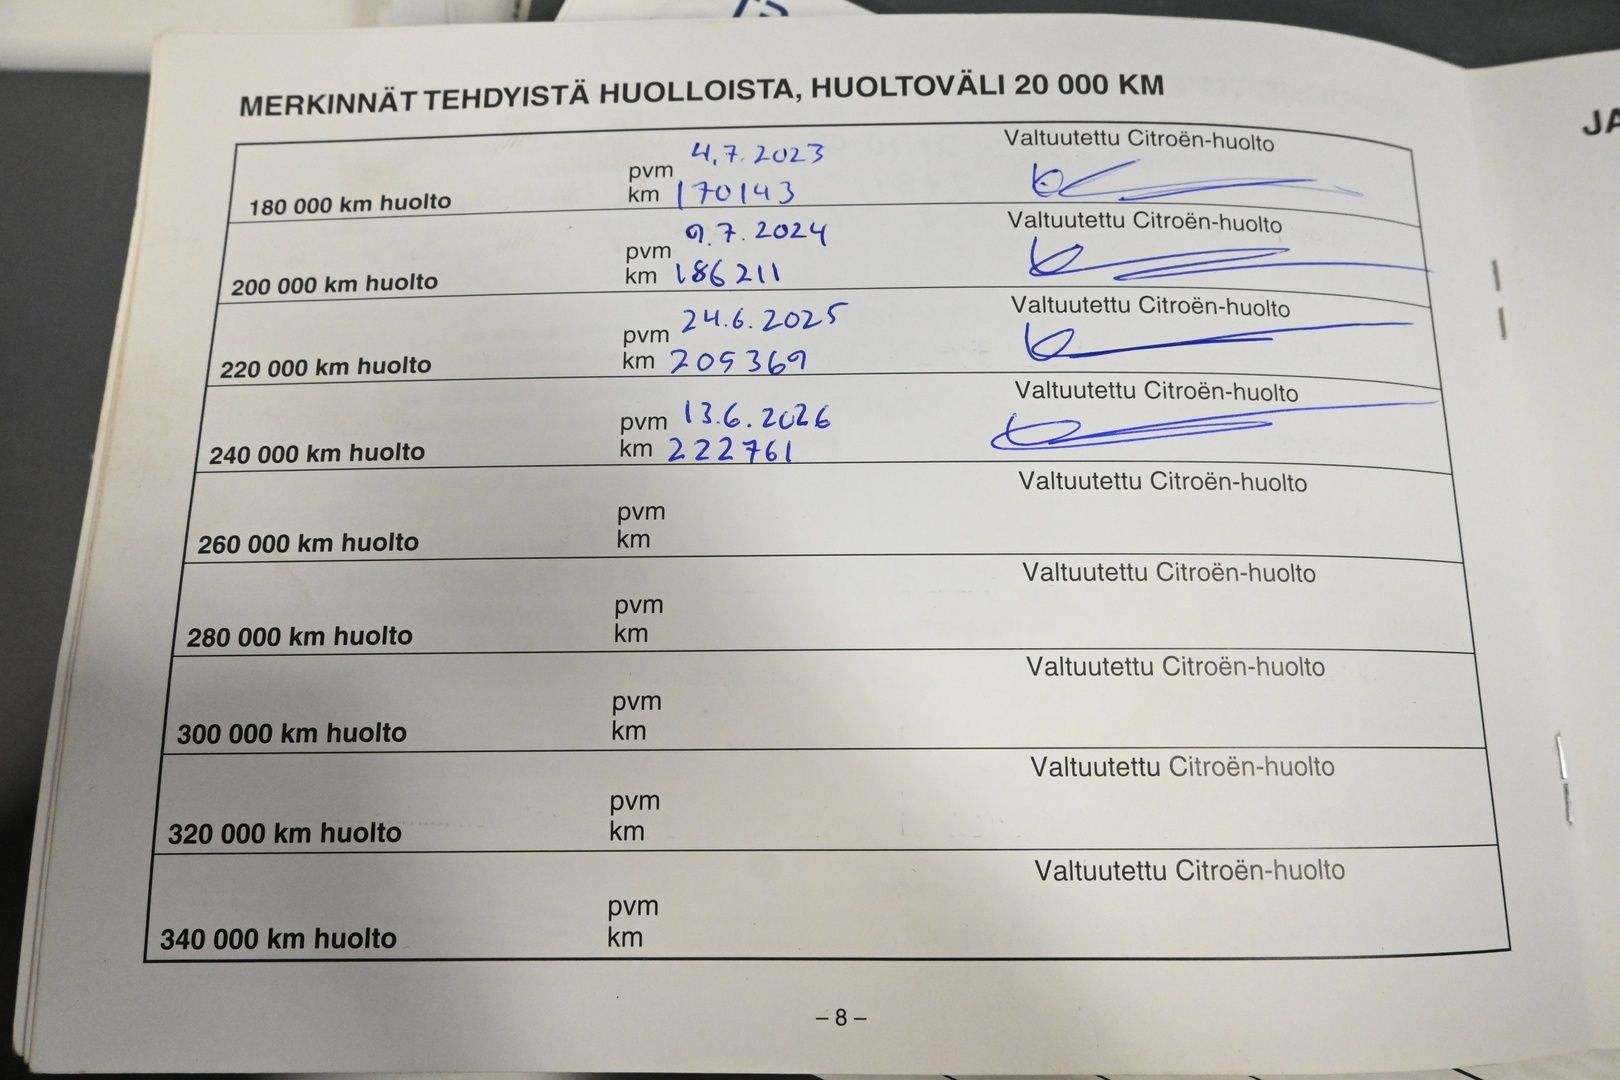 MERKINNÄT TEHDYISTÄ HUOLLOISTA, HUOLTOVÄLI 20 000 KM
JA
180 000 km huolto
pvm 4.7.2023
km 170143
Valtuutettu Citroën-huolto
200 000 km huolto
pvm 9.7.2024
km 186211
Valtuutettu Citroën-huolto
220 000 km huolto
pvm 24.6.2025
km 205369
Valtuutettu Citroën-huolto
240 000 km huolto
pvm 13.6.2026
km 222761
Valtuutettu Citroën-huolto
260 000 km huolto
pvm
km
Valtuutettu Citroën-huolto
280 000 km huolto
pvm
km
Valtuutettu Citroën-huolto
300 000 km huolto
pvm
km
Valtuutettu Citroën-huolto
320 000 km huolto
pvm
km
Valtuutettu Citroën-huolto
340 000 km huolto
pvm
km
Valtuutettu Citroën-huolto
– 8 –